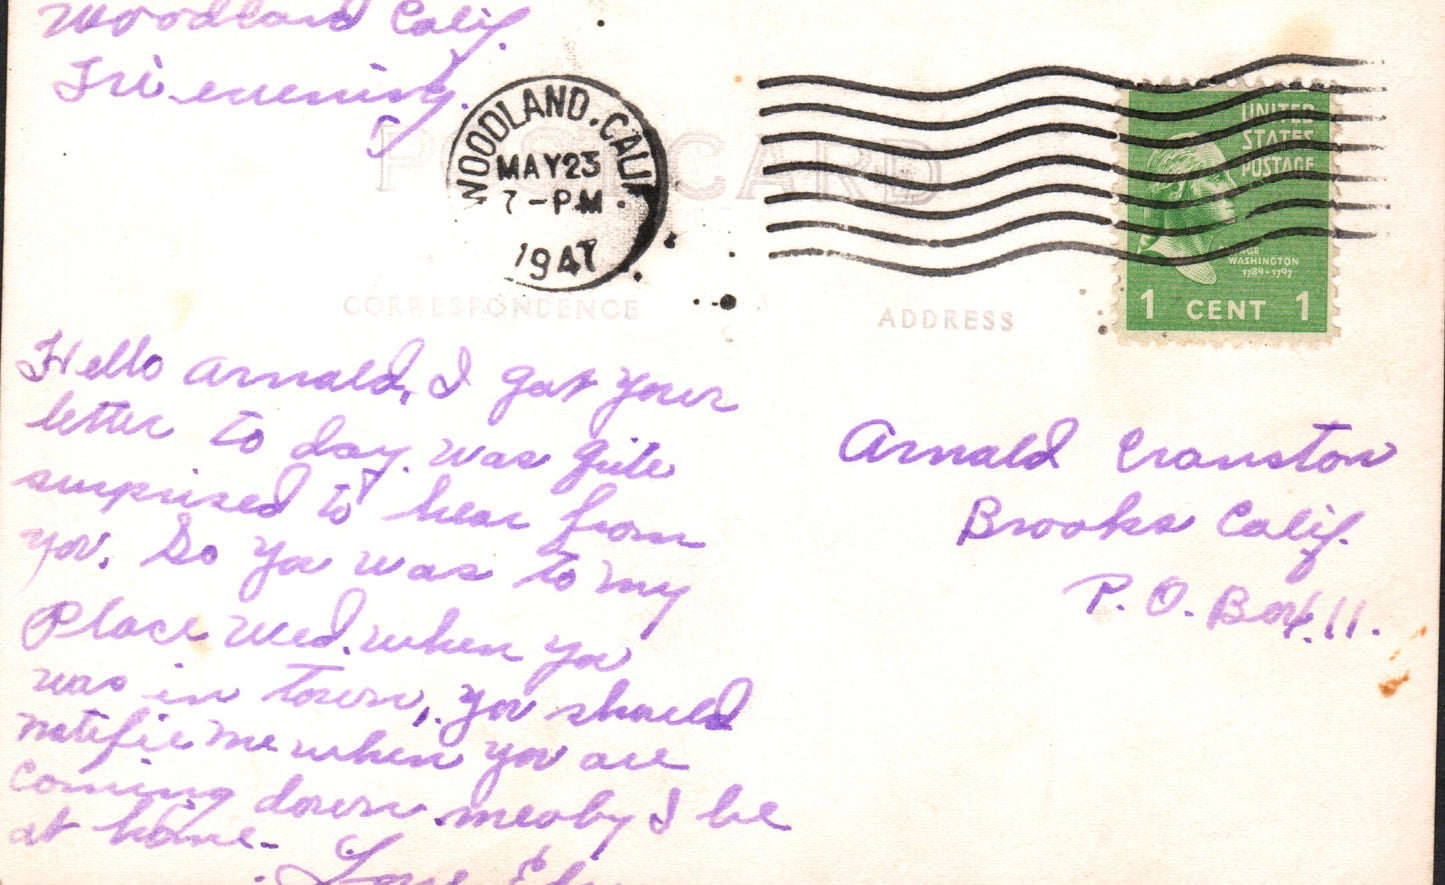 Woodland Calif.
Fri evening.
POST CARD
WOODLAND. CALIF.
MAY 23
7-PM
1947
UNITED
STATES
POSTAGE
WASHINGTON
1789-1797
1 CENT 1
CORRESPONDENCE
ADDRESS
Hello Arnald, I got your
letter to day. was qite
surprised to hear from
you. So ya was to my
Place wed. when ya
was in town, you should
notifie me when you are
coming down meaby I be
at home.
Love
Arnald Cranston
Brooks Calif.
P.O. Box 11.